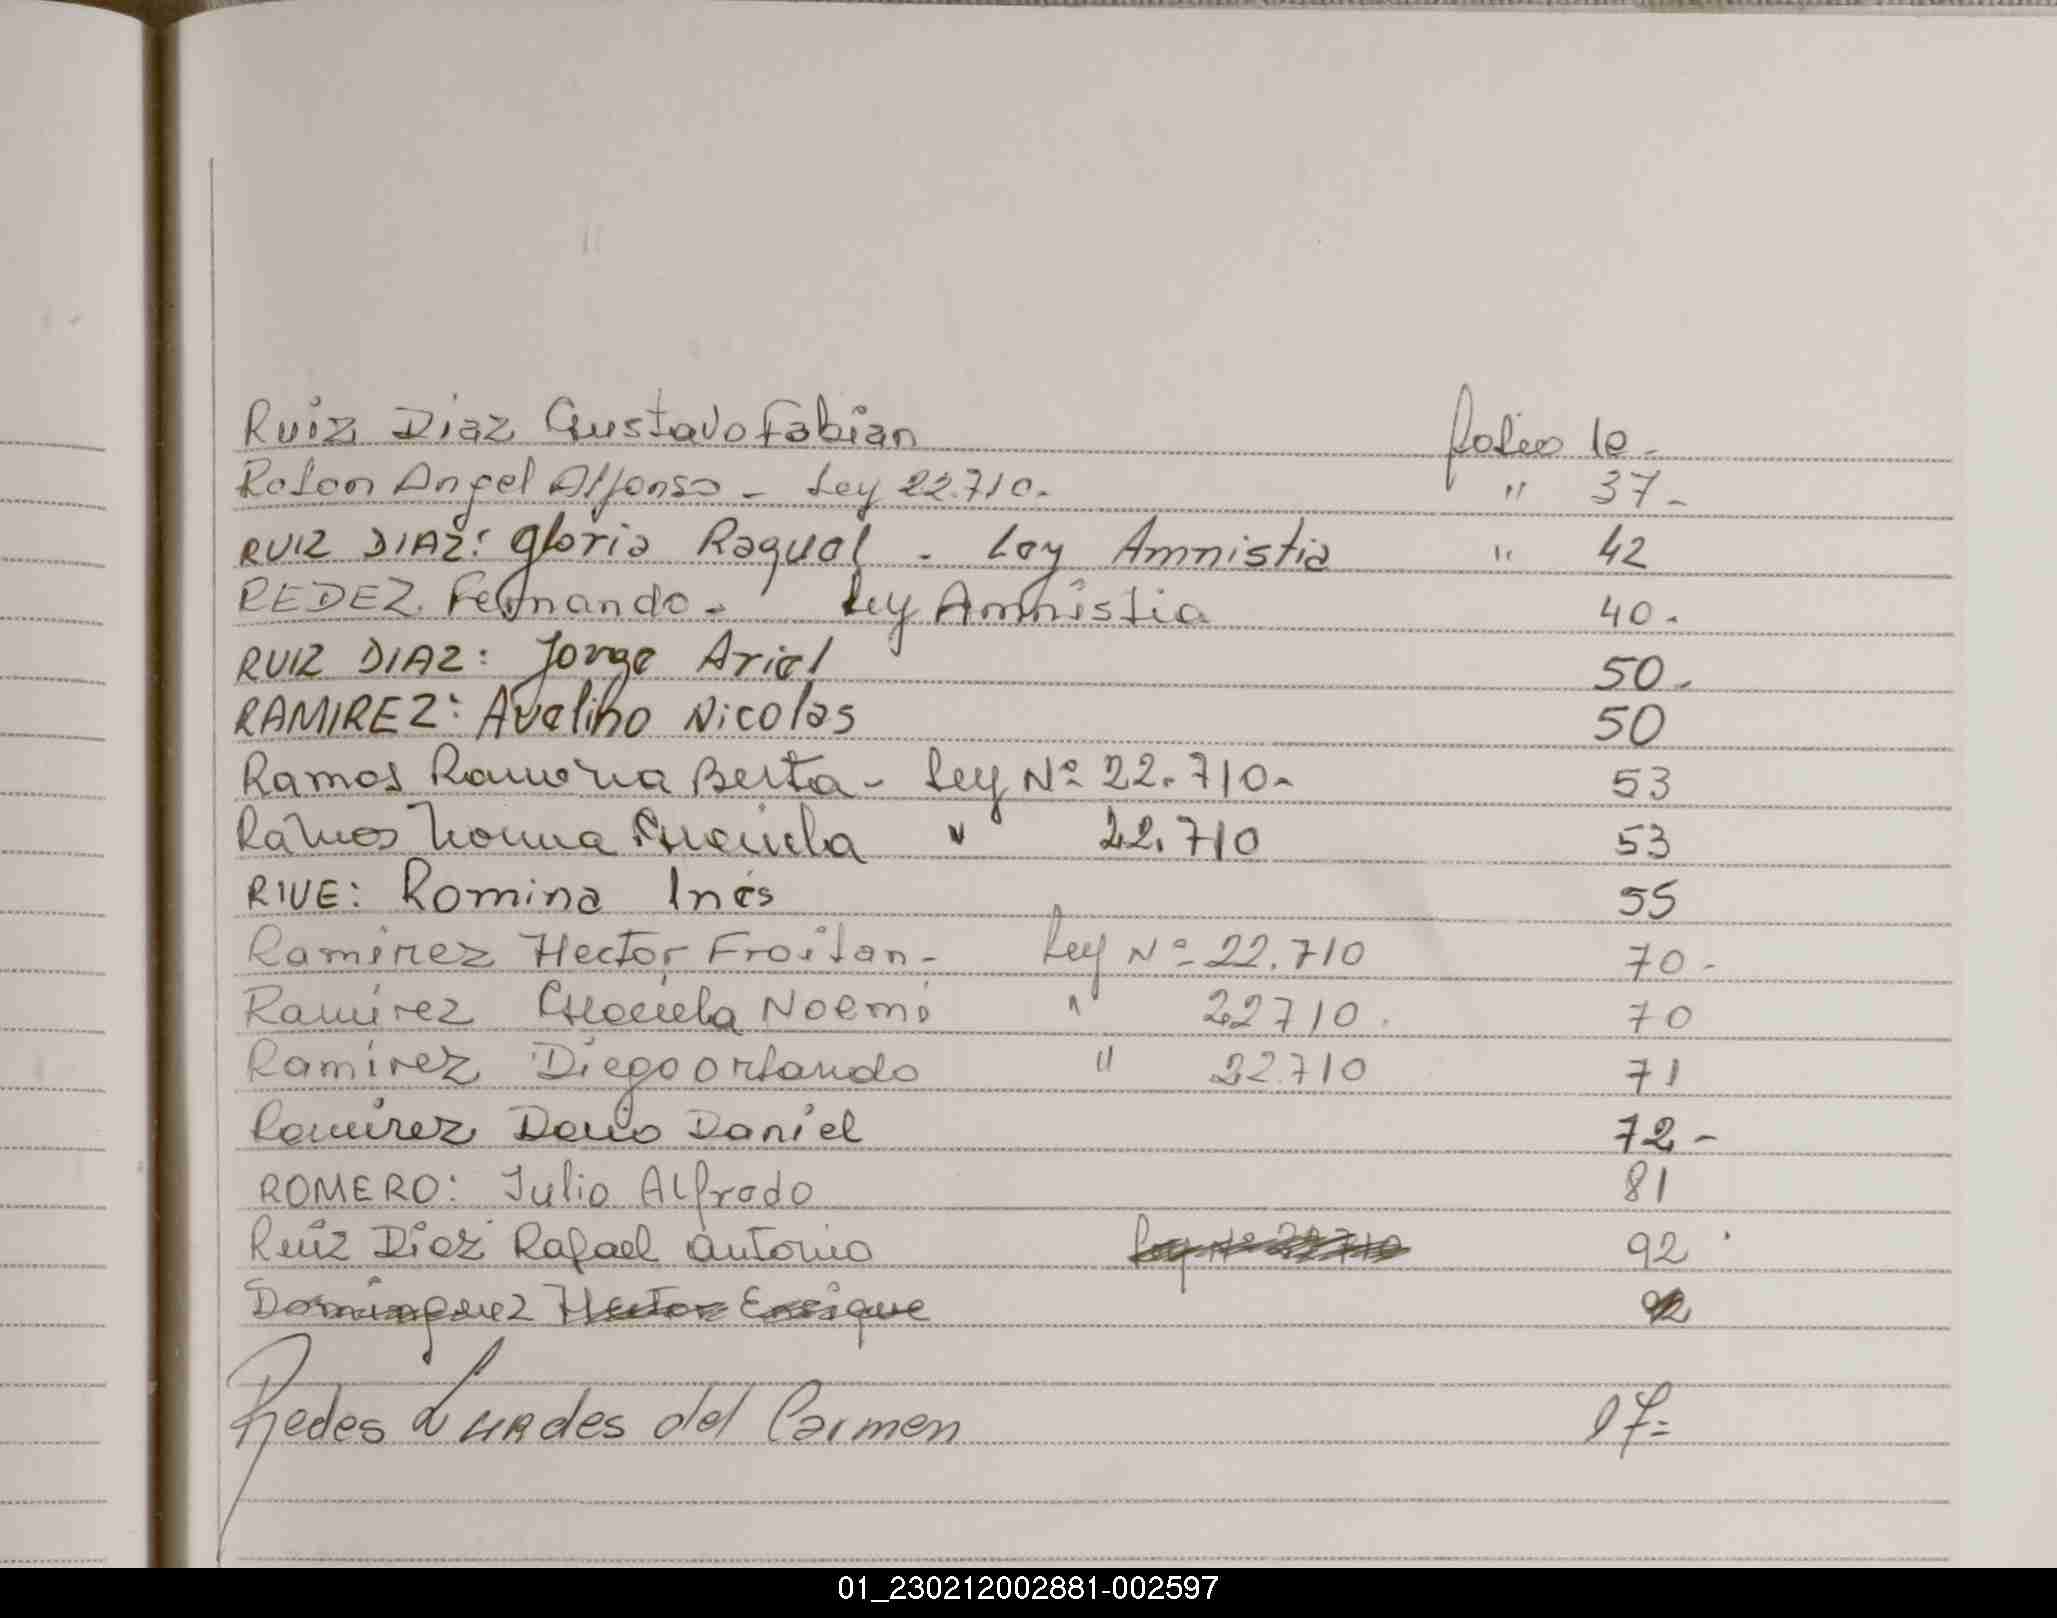 Ruiz Diaz Gustavo Fabian folio 10-
Rolon Angel Alfonso - Ley 22.710. " 37-
RUIZ DIAZ: Gloria Raquel - Ley Amnistia " 42
REDEZ. Fernando - Ley Amnistia 40.
RUIZ DIAZ: Jorge Ariel 50-
RAMIREZ: Avelino Nicolas 50
Ramos Ramona Berta - Ley Nº 22.710- 53
Ramos Norma Graciela " 22.710 53
RIVE: Romina Inés 55
Ramirez Hector Froilan - Ley Nº 22.710 70-
Ramirez Graciela Noemi " 22710. 70
Ramirez Diego Orlando " 22.710 71
Ramirez Dario Daniel 72-
ROMERO: Julio Alfredo 81
Ruiz Diaz Rafael Antonio Ley Nº 22710 92
Dominguez Hector Enrique 92
Redes Lurdes del Carmen